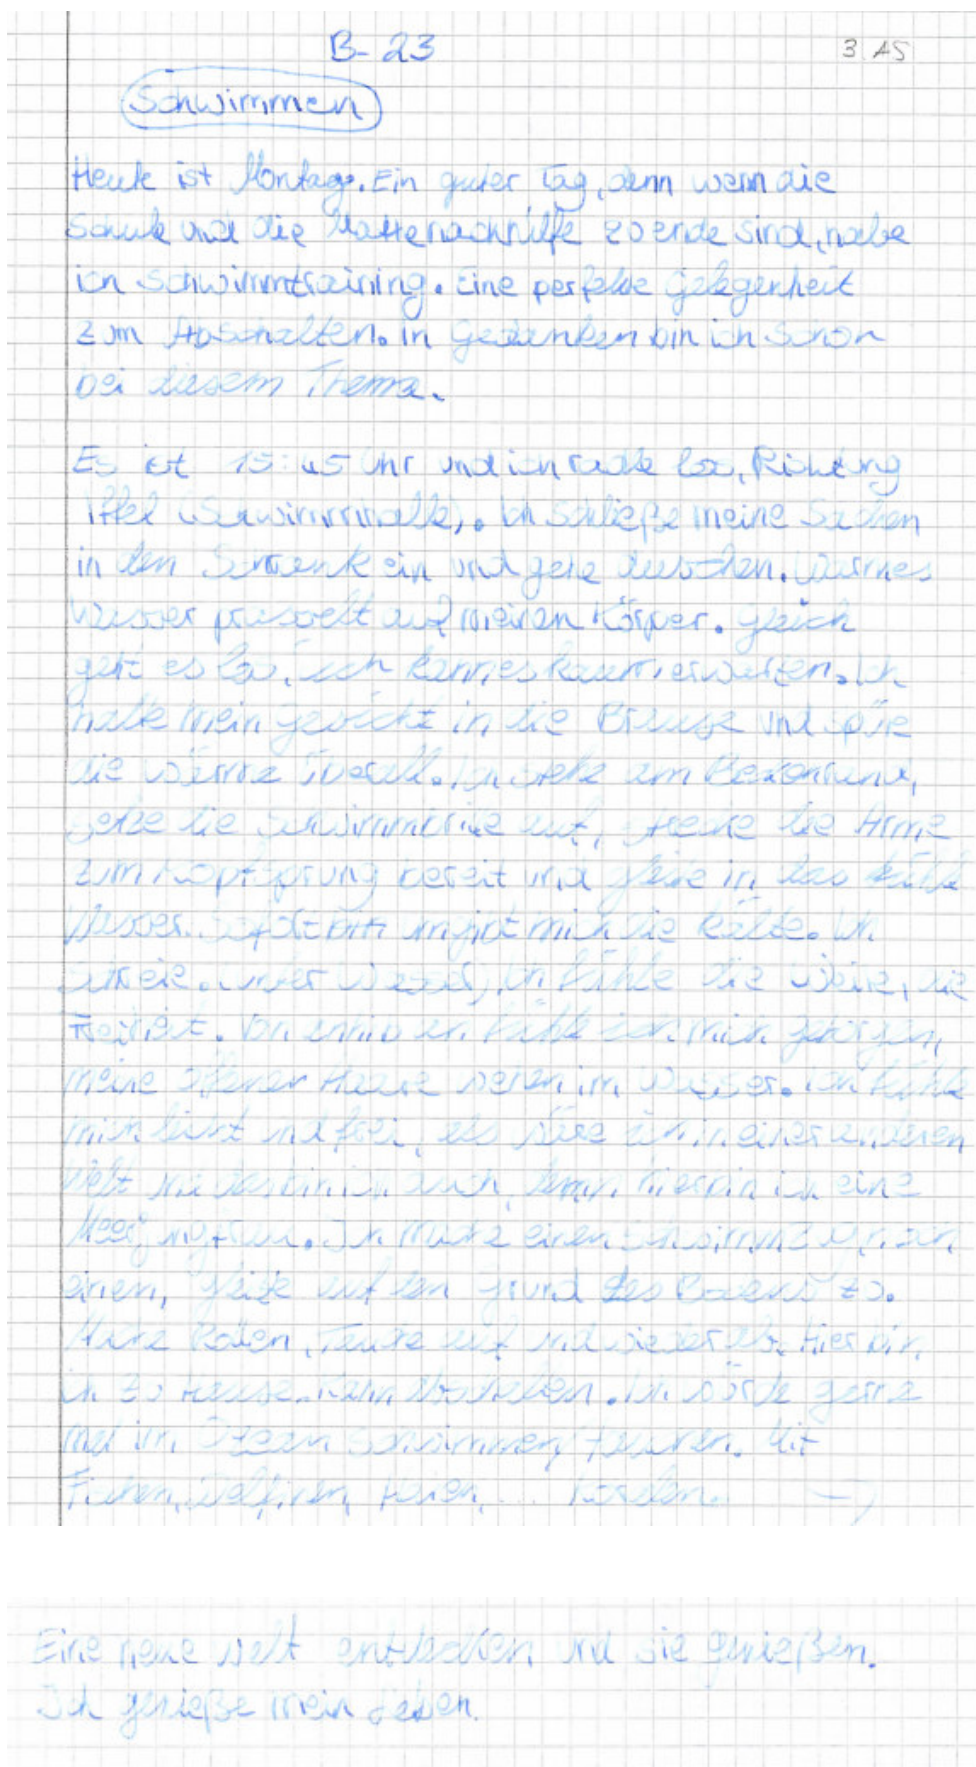 B-23
3. AS
Schwimmen
Heute ist Montag. Ein guter Tag, denn wenn die
Schule und die Mathenachhilfe zu ende sind, habe
ich Schwimmtraining. Eine perfekte Gelegenheit
zum Abschalten. In Gedanken bin ich schon
bei diesem Thema.
Es ist 15:45 Uhr und ich radle los, Richtung
(Schwimmhalle). Ich schließe meine Sachen
in den Schrank ein und gehe duschen. Warmes
Wasser prasselt auf meinen Körper. Gleich
geht es los, ich kann es kaum erwarten. Ich
halte mein Gesicht in die Brause und spüre
die Wärme überall. Ich stehe am Beckenrand,
setze die Schwimmbrille auf, strecke die Arme
zum Kopfsprung bereit und gleite in das kühle
Wasser. Sofort umgibt mich die Kälte. Ich
schreie. (Unter Wasser) Ich fühle die Weite, die
Freiheit. Von an fühle ich mich geborgen,
meine offenen Haare wehen im Wasser. Ich fühle
mich leicht und frei, als wäre ich in einer anderen
Welt und das bin ich auch, denn hier bin ich eine
Meerjungfrau. Ich mache einen Schwimmzug nach
einem, gleite auf den Grund des Beckens zu.
Mache Rollen, Tauche auf und wieder ab. Hier bin
ich zu Hause. Kann abschalten. Ich würde gerne
mal im Ozean schwimmen, tauchen. Mit
Fischen, Delfinen, Haien, Korallen. →
Eine neue Welt entdecken und sie genießen.
Ich genieße mein Leben.